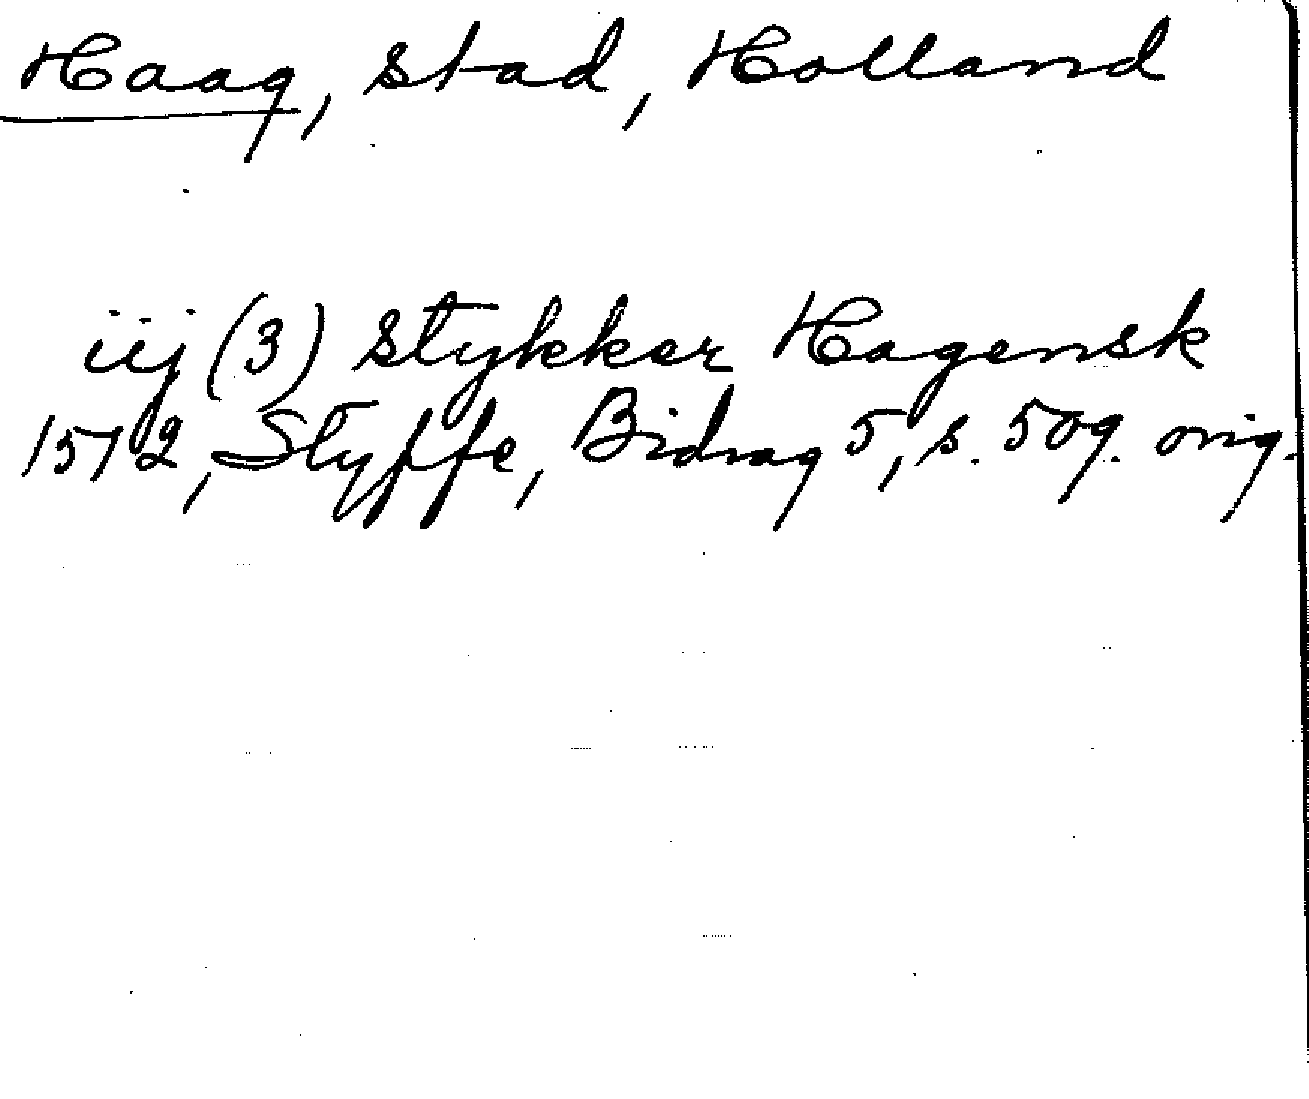 Haag, stad, Holland
iij (3) stykker Hagensk
1512, Styffe, Bidrag 5, s. 509. orig.